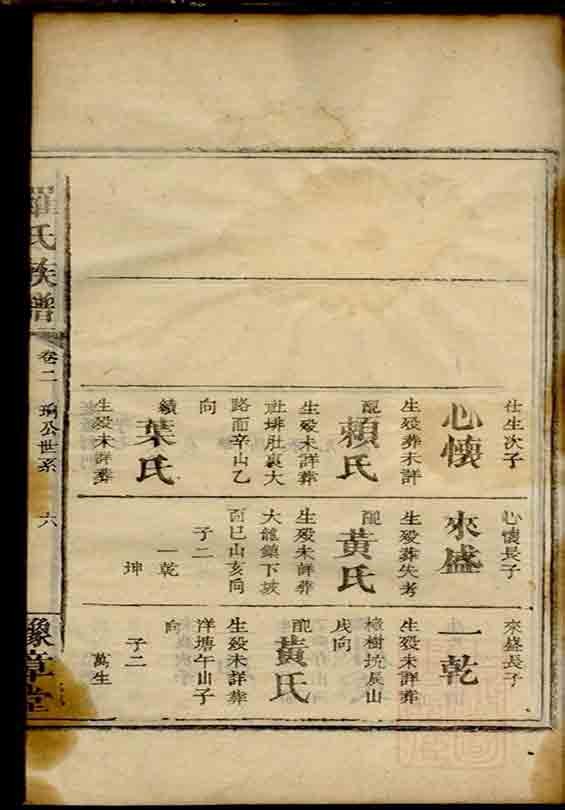 仕生次子
心懷
生殁葬未詳
配
賴氏
生殁未詳葬
社埤肚裏大
路面辛山乙
向
續
葉氏
生殁未詳葬
心懷長子
來盛
生殁葬失考
配
黃氏
生殁未詳葬
大龍鎮下坡
面巳山亥向
子二
一乾
坤
來盛長子
一乾
生殁未詳葬
樟樹坑辰山
戌向
配
黃氏
生殁未詳葬
洋塘午山子
向
子二
萬生
羅氏族譜
卷二
公世系
六
豫章堂